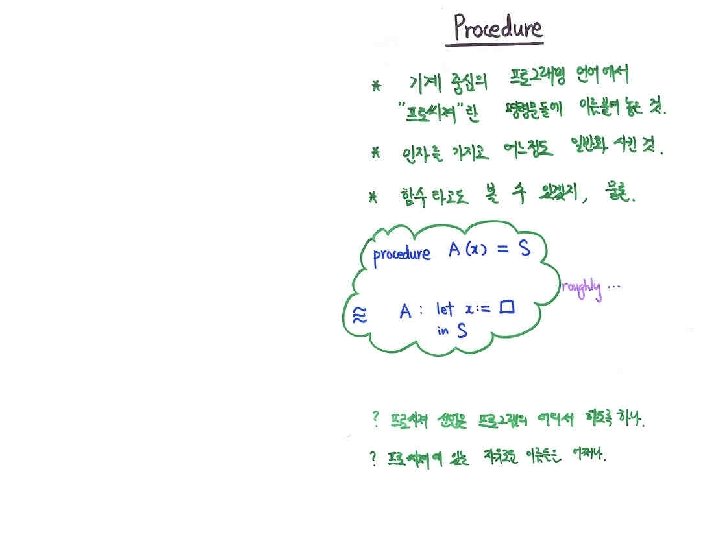 Procedure
* 기계 중심의 프로그래밍 언어에서
"프로시져"란 명령문들에 이름붙여 놓은 것.
* 인자를 가지고 어느정도 일반화 시킨 것.
* 함수라고도 볼 수 있겠지, 물론.
procedure A(x) = S
roughly ...
≈ A : let x := □
in S
? 프로시져 선언은 프로그램의 어디서 하도록 하나.
? 프로시져에 있는 자유로운 이름들은 어쩌나.